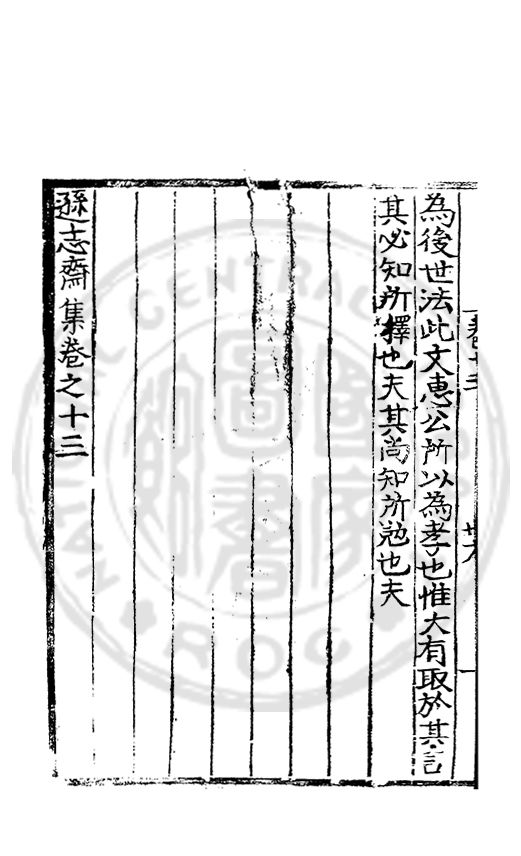 為後世法此文惠公所以為孝也惟大有取於其言
其必知所擇也夫其尚知所勉也夫
遜志齋集卷之十三
NATIONAL CENTRAL
ROC